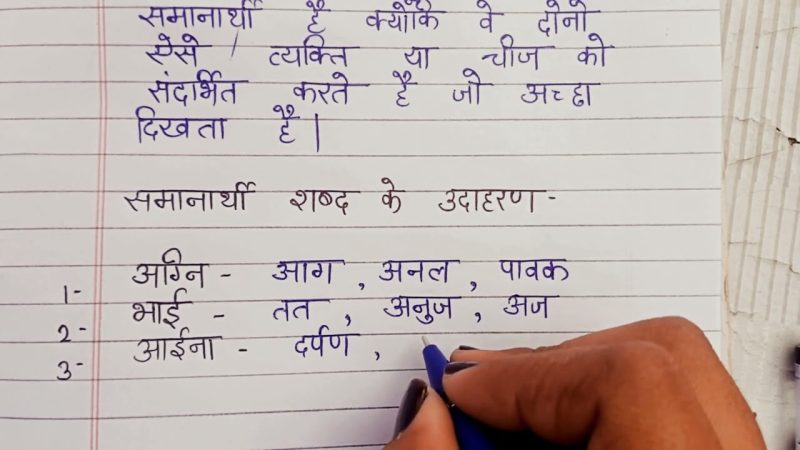 समानार्थी है क्योंकि वे दोनों
ऐसे / व्यक्ति या चीज को
संदर्भित करते है जो अच्छा
दिखता है।
समानार्थी शब्द के उदाहरण -
1- अग्नि - आग, अनल, पावक
2- भाई - तत, अनुज, अज
3- आईना - दर्पण,